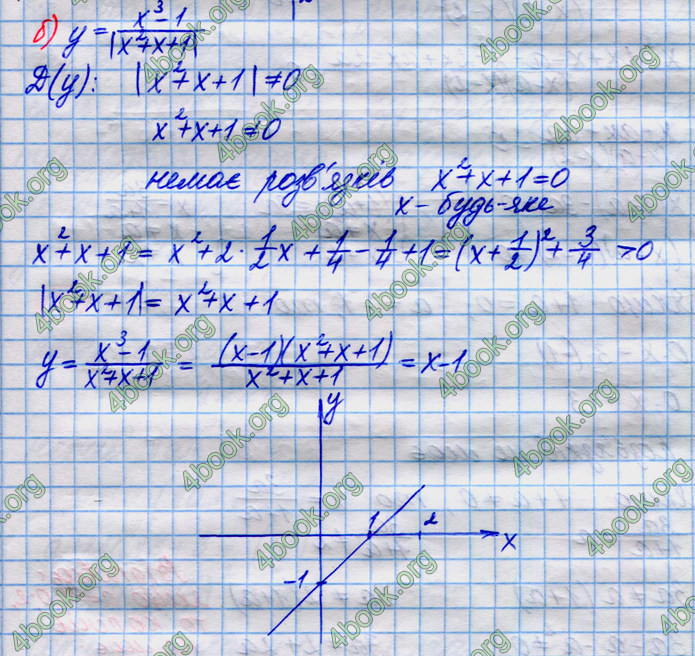 б) y = (x³-1)/|x²+x+1|
D(y): |x²+x+1| ≠ 0
x²+x+1 ≠ 0
немає розв'язків x²+x+1=0
x - будь-яке
x²+x+1 = x²+2·1/2x+1/4-1/4+1=(x+1/2)²+3/4 >0
|x²+x+1| = x²+x+1
y = (x³-1)/(x²+x+1) = (x-1)(x²+x+1)/(x²+x+1) = x-1
y
1 2
x
-1
4book.org